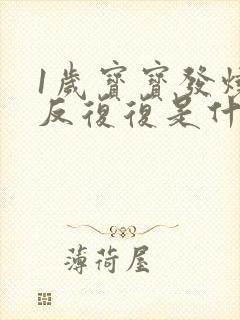 1歲寶寶發燒
反復復是什
薄荷屋